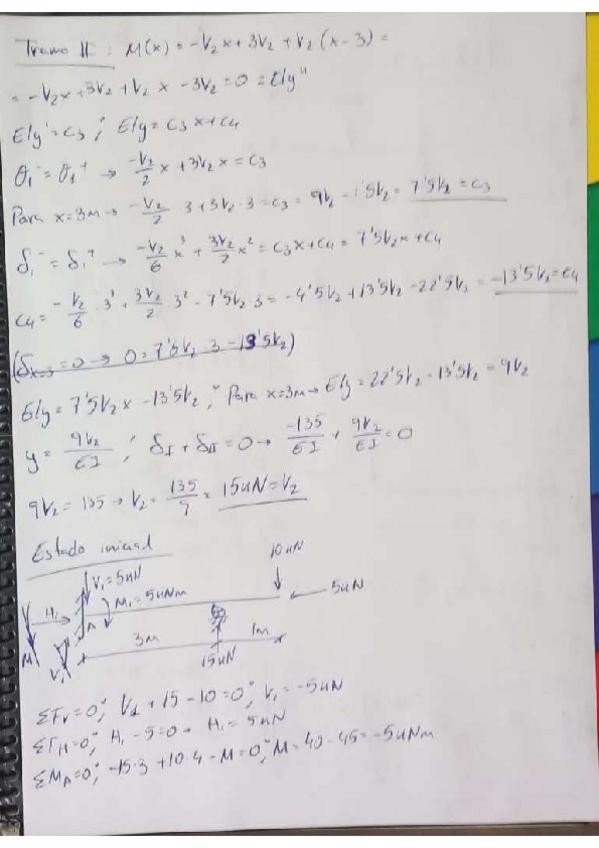 Tramo II : M(x) = -V₂x + 3V₂ + V₂(x-3) =
= -V₂x + 3V₂ + V₂x - 3V₂ = 0 = EIy''
EIy' = C₃ ; EIy = C₃x + C₄
θ₁⁻ = θ₁⁺ → -V₂/2 x + 3V₂x = C₃
Para x=3m → -V₂/2 · 3 + 3V₂·3 = C₃ = 9V₂ - 1'5V₂ = 7'5V₂ = C₃
δ₁⁻ = δ₁⁺ → -V₂/6 x³ + 3V₂/2 x² = C₃x + C₄ = 7'5V₂x + C₄
C₄ = -V₂/6 · 3³ + 3V₂/2 3² - 7'5V₂·3 = -4'5V₂ + 13'5V₂ - 22'5V₂ = -13'5V₂ = C₄
(δx=3 = 0 → 0 = 7'5V₂ · 3 - 13'5V₂)
EIy = 7'5V₂x - 13'5V₂ ; Para x=3m → EIy = 22'5V₂ - 13'5V₂ = 9V₂
y = 9V₂/EI ; δI + δII = 0 → -135/EI + 9V₂/EI = 0
9V₂ = 135 → V₂ = 135/9 = 15kN = V₂
Estado inicial
10kN
V₁=5kN
M₁=5kNm
5kN
H₁
A
M
V₁
3m
1m
15kN
ΣFv=0; V₁ + 15 - 10 = 0; V₁ = -5kN
ΣFH=0; H₁ - 5 = 0 → H₁ = 5kN
ΣMA=0; -15·3 + 10·4 - M = 0; M = 40 - 45 = -5kNm